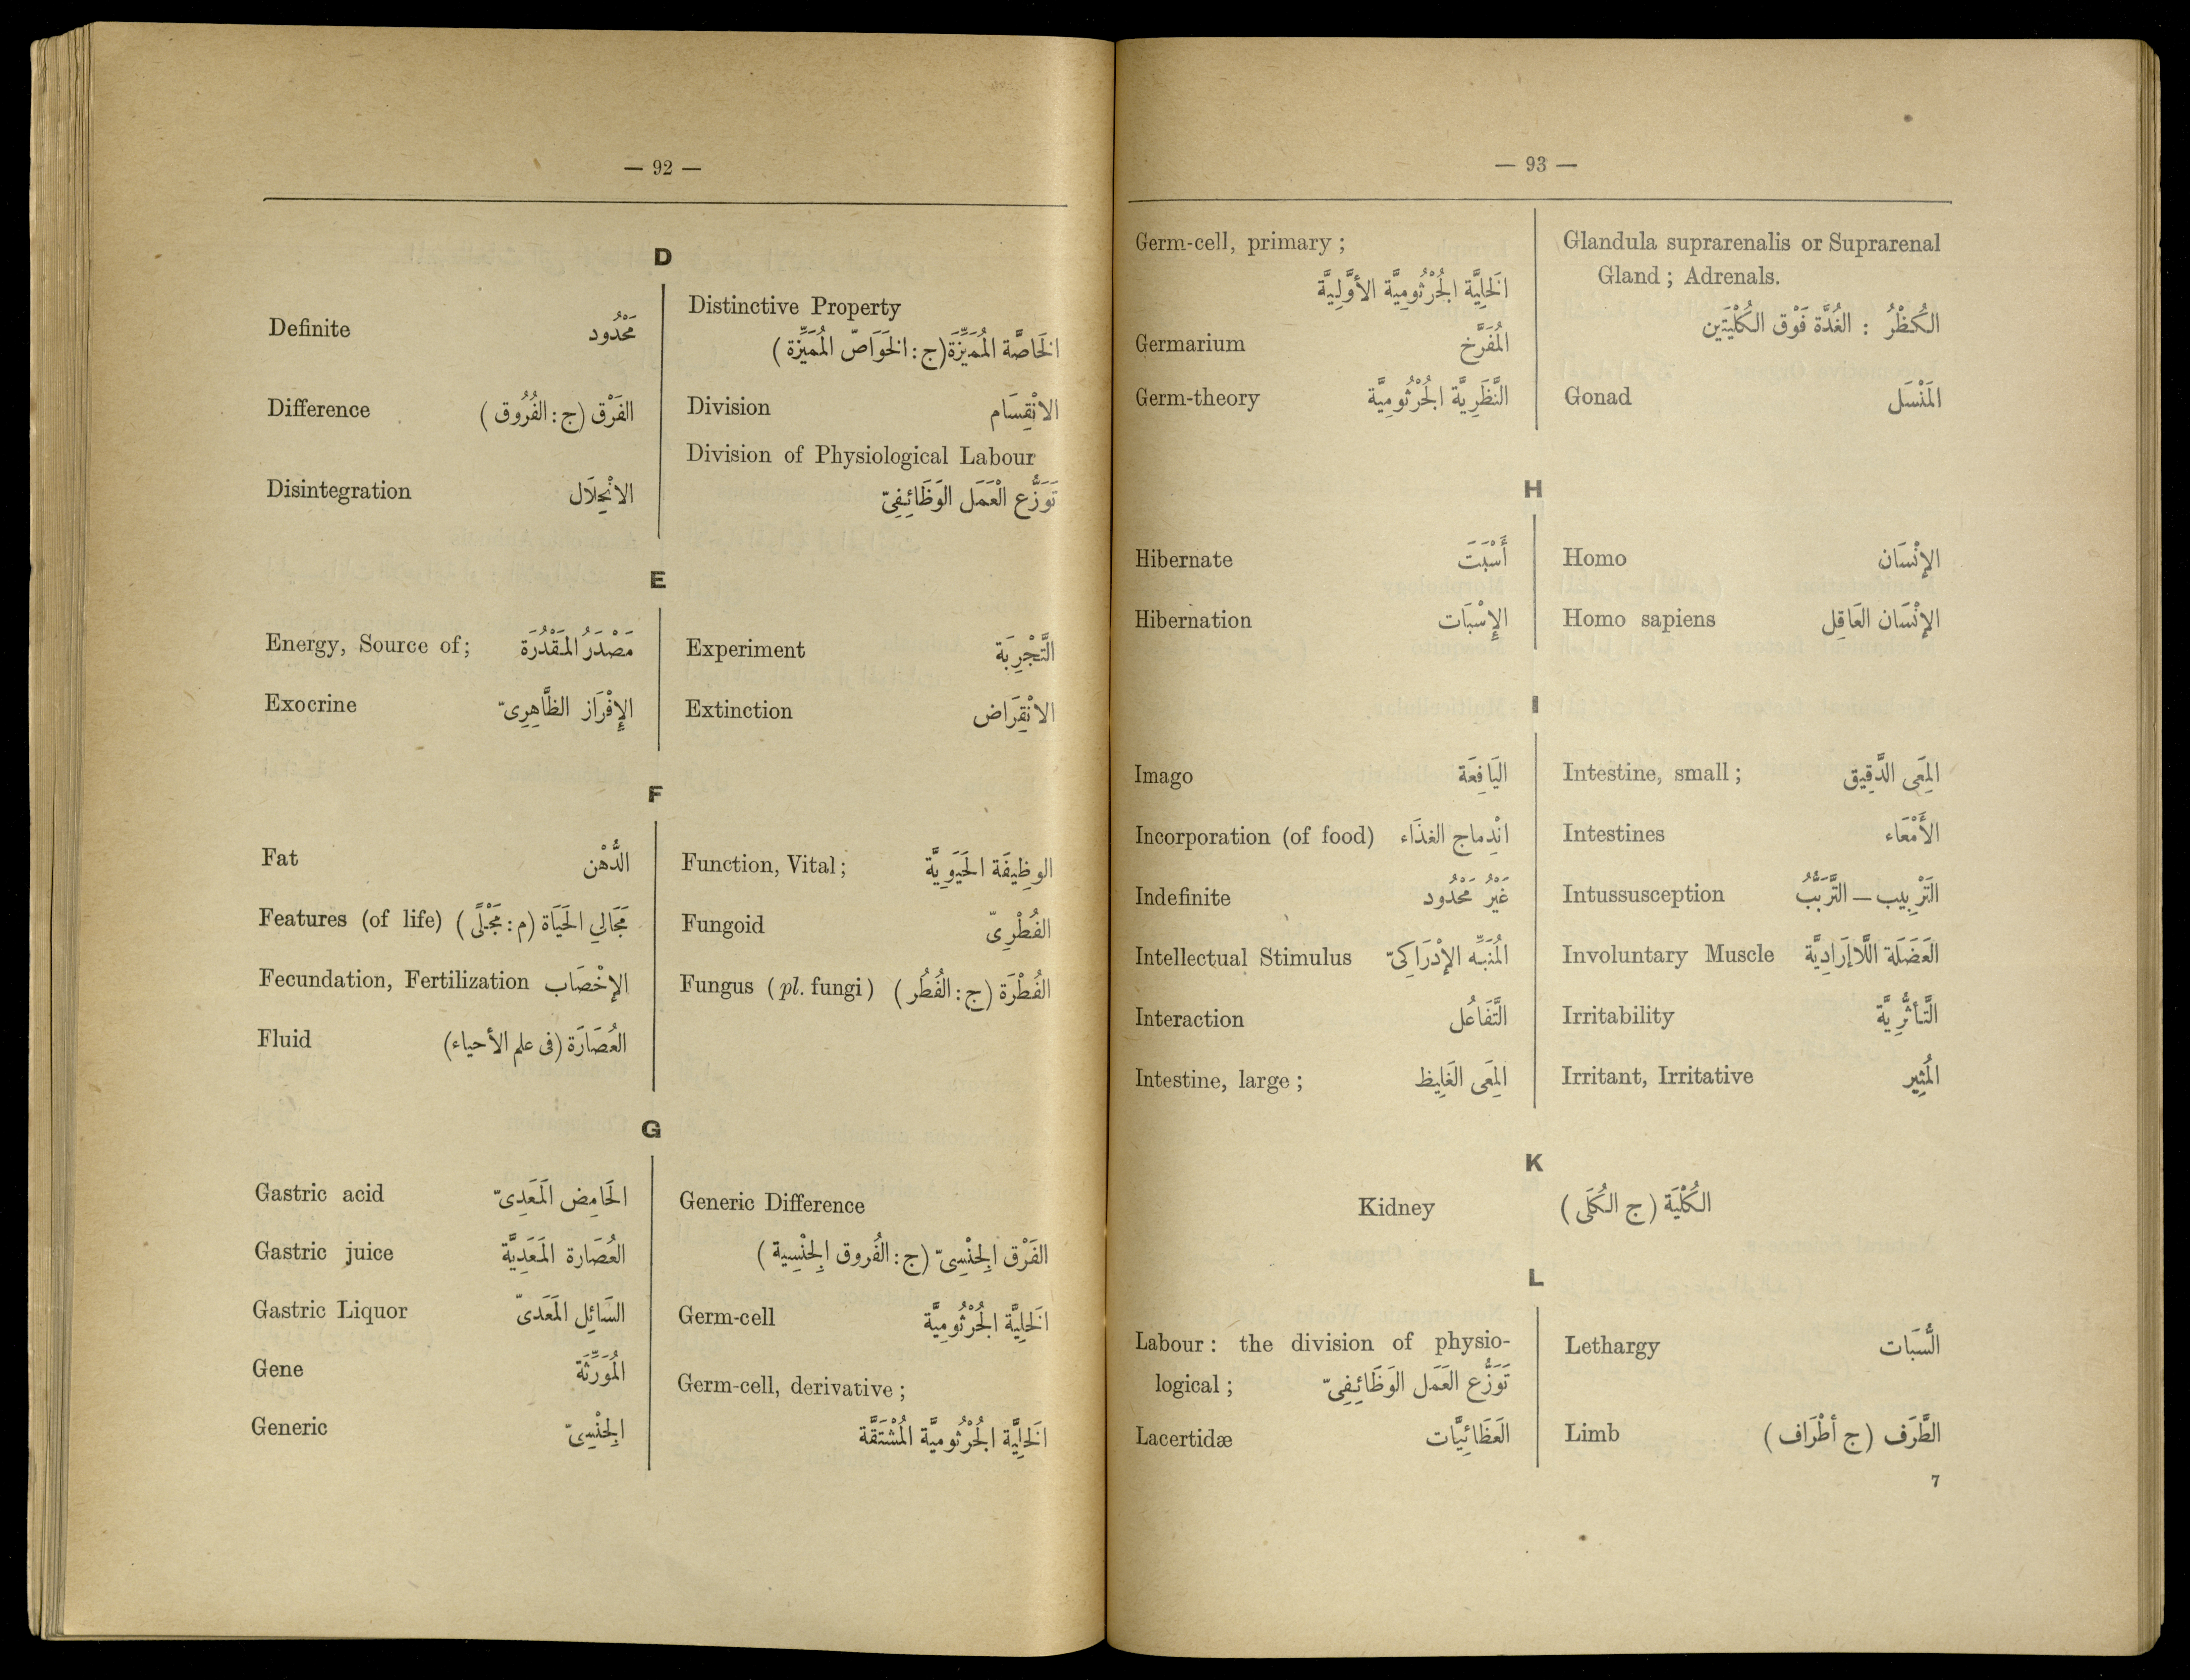 — 92 —
D
Definite مَحْدُود
Difference الفَرْق (ج : الفُرُوق)
Disintegration الانْحِلَال
Distinctive Property
الخَاصَّة المُمَيِّزَة (ج : الخَوَاصّ المُمَيِّزَة)
Division الانْقِسَام
Division of Physiological Labour
تَوَزُّع الْعَمَل الوَظَائِفِىّ
E
Energy, Source of ; مَصْدَرُ المَقْدُرَة
Exocrine الإِفْرَاز الظَّاهِرِىّ
Experiment التَّجْرِبَة
Extinction الانْقِرَاض
F
Fat الدُّهْن
Features (of life) مَجَالي الحَيَاة (م : مَجْلًى)
Fecundation, Fertilization الإخْصَاب
Fluid العُصَارَة (فى علم الأحياء)
Function, Vital ; الوظِيفَة الحَيَوِيَّة
Fungoid الفُطْرِىّ
Fungus (pl. fungi) الفُطْرَة (ج : الفُطُر)
G
Gastric acid الحَامِض المَعَدِىّ
Gastric juice العُصَارة المَعَدِيَّة
Gastric Liquor السَائِل المَعَدىّ
Gene المُوَرِّثَة
Generic الجِنْسِىّ
Generic Difference
الفَرْق الجِنْسِىّ (ج : الفُروق الجِنْسِية)
Germ-cell الخَلِيَّة الجُرْثُومِيَّة
Germ-cell, derivative ;
الخَلِيَّة الجُرْثُوميَّة المُشْتَقَّة
— 93 —
Germ-cell, primary ;
الخَلِيَّة الجُرْثُومِيَّة الأوَّلِيَّة
Germarium المُفَرَّخ
Germ-theory النَّظَرِيَّة الجُرْثُومِيَّة
Glandula suprarenalis or Suprarenal
Gland ; Adrenals.
الكُظْرُ : الغُدَّة فَوْق الكُلْيَتَين
Gonad المَنْسَل
H
Hibernate أَسْبَتَ
Hibernation الإِسْبَات
Homo الإنْسَان
Homo sapiens الإنْسَان العَاقِل
I
Imago اليَافِعَة
Incorporation (of food) انْدِماج الغذَاء
Indefinite غَيْرُ مَحْدُود
Intellectual Stimulus المُنَبِّه الإدْرَاكِىّ
Interaction التَّفَاعُل
Intestine, large ; المِعَى الغَلِيظ
Intestine, small ; المِعَى الدَّقِيق
Intestines الأَمْعَاء
Intussusception التَرْبِيب — التَّرَبُّبُ
Involuntary Muscle العَضَلَة اللَّاإرَادِيَّة
Irritability التَّأثُّرِيَّة
Irritant, Irritative المُثِير
K
Kidney الكُلْيَة (ج الكُلَى)
L
Labour : the division of physio-
logical ; تَوَزُّع العَمَل الوَظَائِفِىّ
Lacertidæ العَظَائِيَّات
Lethargy السُّبَات
Limb الطَّرَف (ج أطْرَاف)
7